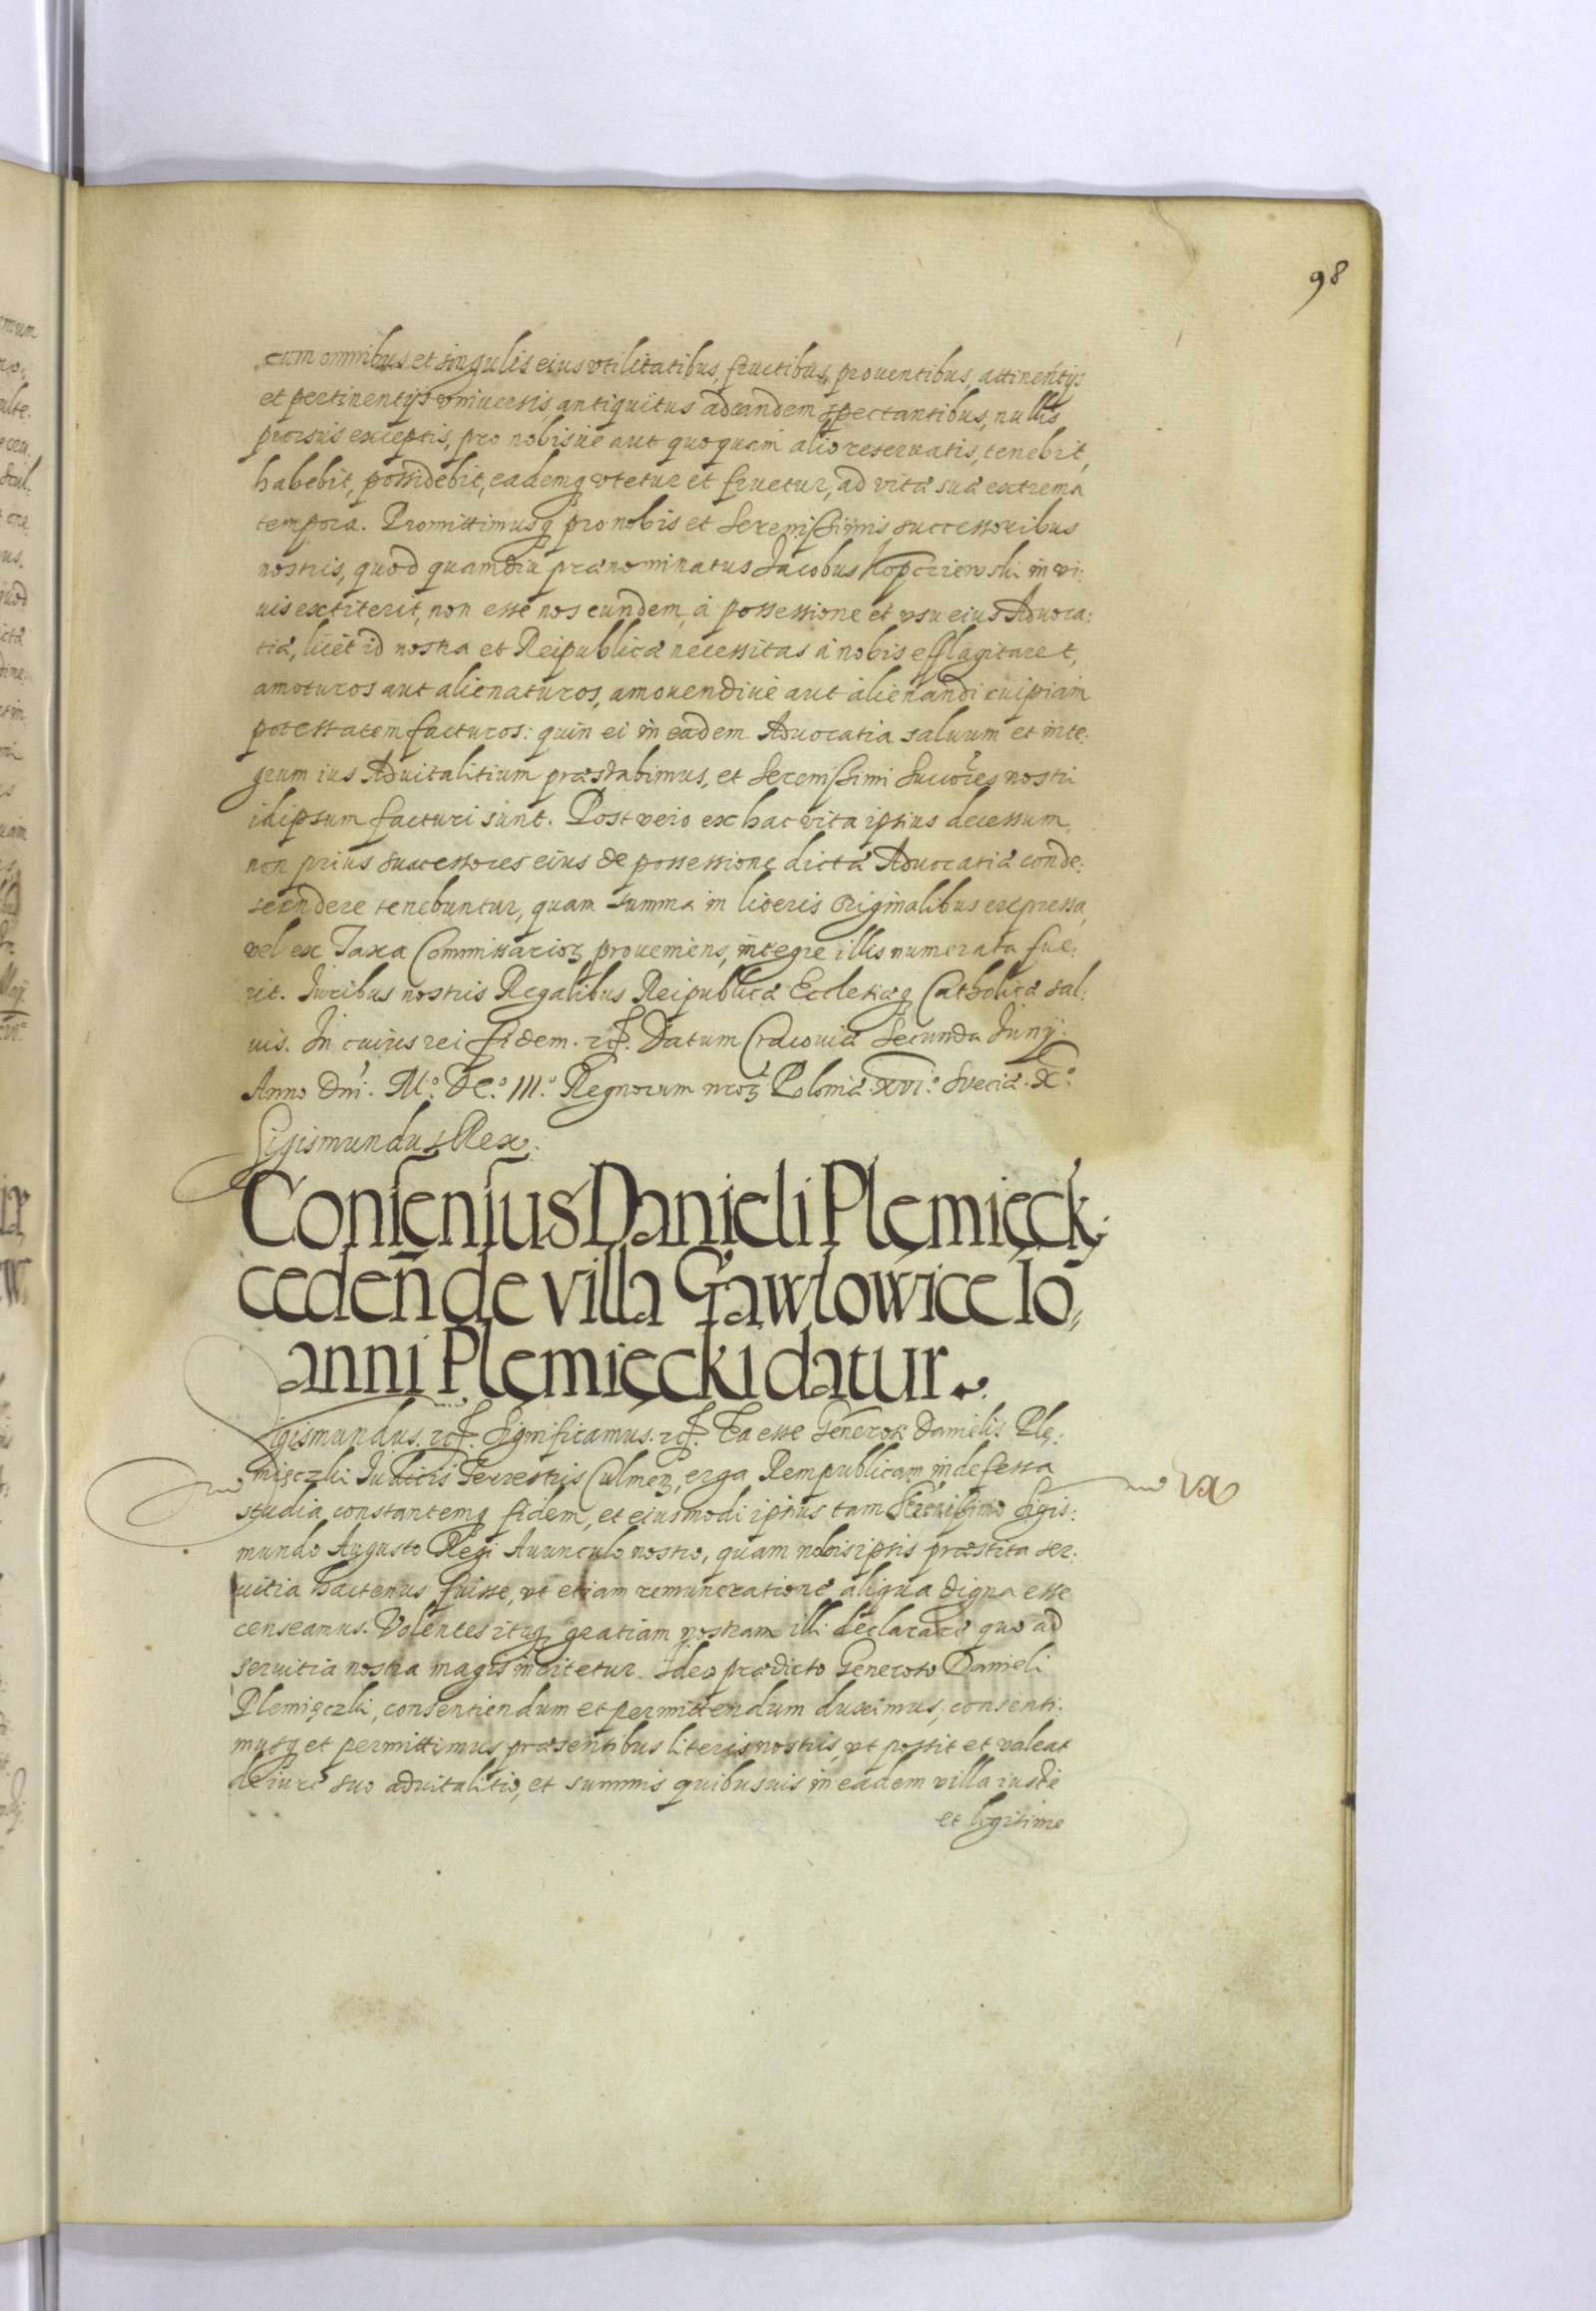 98
cum omnibus et singulis eius vtilitatibus, fructibus, prouentibus, attinentijs
et pertinentijs vniuersis, antiquitus ad eandem spectantibus, nullis
prorsus exceptis, pro nobisue aut quoquam alio reseruatis, tenebit,
habebit, possidebit, eademq vtetur et fruetur, ad vitæ suæ extrema
tempora. Promittimusq pro nobis et Serenissimis successoribus
nostris, quod quamdiu prænominatus Jacobus Kopczienski in vi:
uis extiterit, non esse nos eundem, à possessione et vsu eius Aduoca:
tiæ, licet id nostra et Reipublicæ necessitas à nobis efflagitaret,
amoturos aut alienaturos, amouendiue aut alienandi cuipiam
potestatem facturos: quin ei in eadem Aduocatia saluum et inte:
grum ius Aduitalitium præstabimus, et Serenissimi Succ̃ores nostri
idipsum facturi sunt. Post vero ex hac vita ipsius decessum,
non prius successores eius de possessione dictæ Aduocatiæ conde:
scendere tenebuntur, quam summa in literis originalibus expressa,
vel ex Taxa Commissarioꝝ proueniens, integre illis numerata fue:
rit. Iuribus nostris Regalibus Reipublicæ Ecclesiæq Catholicæ sal:
uis. In cuius rei fidem. etc. Datum Cracouiæ Secunda Junÿ.
Anno Dnĩ. M.º DC.º III.º Regnorum nr̃oꝝ Poloniæ. XVI.º Sveciæ. X.º
Sigismundus Rex.
Consensus Danieli Plemięck:
cedeñ de villa Gawlowice Io„
anni Plemięcki datur.
Sigismundus. etc. Significamus. etc. Ea esse Generosi Danielis Plę:
mięczki Iudicis Terrestris Culmeñ, erga Rempublicam indefessa
studia, constantemq fidem, et eiusmodi ipsius tam Serenissimo Sigis:
mundo Augusto Regi Auunculo nostro, quam nobis ipsis præstita ser:
uitia hactenus fuisse, vt etiam remuneratione aliqua digna esse
censeamus. Volentes itaq gratiam nostram illi declarare quo ad
seruitia nostra magis incitetur. Ideo prædicto Generoso Danieli
Plemięczki, consentiendum et permittendum duximus, consenti:
musq et permittimus præsentibus literis nostris, vt possit et valeat
de iure suo aduitalitio, et summis quibusuis in eadem villa iuste
et legitime